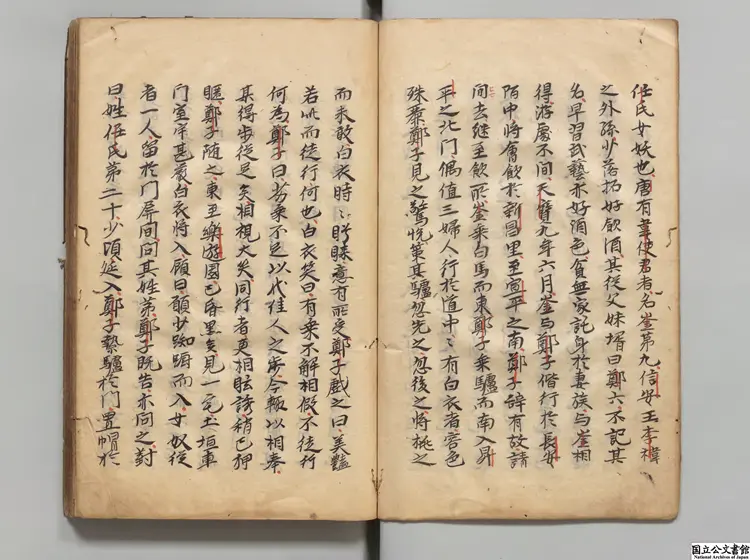 任氏女妖也唐有韋使君者名崟第九信安王李禕
之外孫少落拓好飲酒其從父妹壻曰鄭六不記其
名早習武藝亦好酒色貧無家託身於妻族与崟相
得游處不間天寶九年六月崟与鄭子偕行於長安
陌中將會飲於新昌里至宣平之南鄭子辞有故請
間去继至飲所崟乗白馬而東鄭子乗驢而南入昇
平之北門偶值三婦人行於道中〻有白衣者容色
殊麗鄭子見之驚悦策其驢忽先之忽後之將挑之
而未敢白衣時〻盻睞意有所受鄭子戲之曰美豔
若此而徒行何也白衣笑曰有乗不解相假不徒行
何為鄭子曰劣乗不足以代佳人之步今輙以相奉
某得步從足矣相視大笑同行者更相眩誘稍已狎
暱鄭子隨之東至樂遊園已昏黑矣見一宅土垣車
門室宇甚嚴白衣將入顧曰願少踟蹰而入女奴從
者一人留於門屏間問其姓第鄭子既告亦問之對
曰姓任氏第二十少頃延入鄭子縶驢於門置帽於
国立公文書館
National Archives of Japan